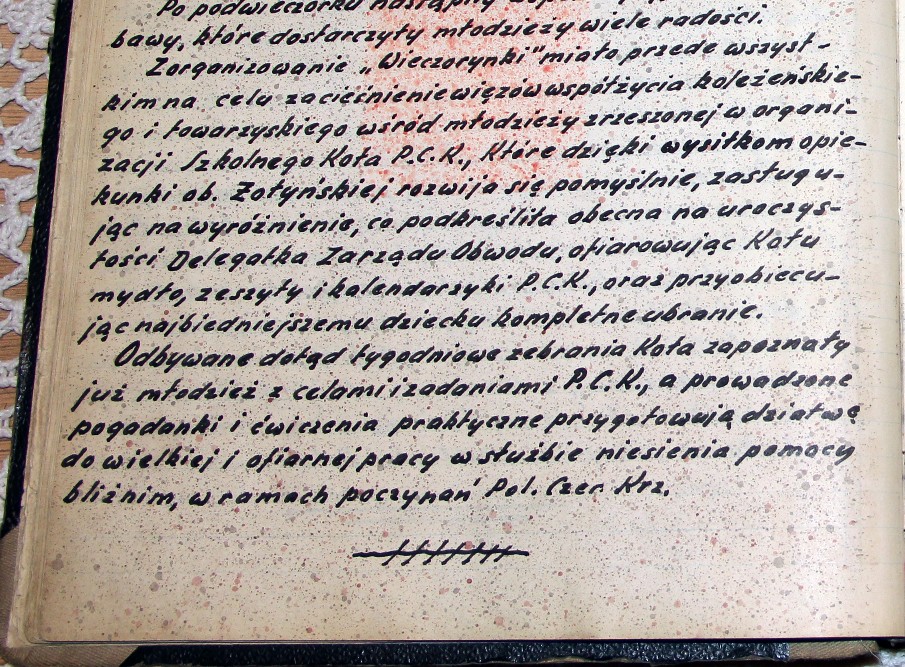 Po podwieczorku nastąpiły
bawy, które dostarczyły młodzieży wiele radości.
Zorganizowanie „Wieczorynki" miało przede wszyst-
kim na celu zacieśnienie więzów współżycia koleżeńskie-
go i towarzyskiego wśród młodzieży zrzeszonej w organi-
zacji Szkolnego Koła P.C.K., które dzięki wysiłkom opie-
kunki ob. Żołyńskiej rozwija się pomyślnie, zasługu-
jąc na wyróżnienie, co podkreśliła obecna na uroczys-
tości Delegatka Zarządu Obwodu, ofiarowując Kołu
mydło, zeszyty i kalendarzyki P.C.K., oraz przyobiecu-
jąc najbiedniejszemu dziecku kompletne ubranie.
Odbywane dotąd tygodniowe zebrania Koła zapoznały
już młodzież z celami i zadaniami P.C.K., a prowadzone
pogadanki i ćwiczenia praktyczne przygotowują dziatwę
do wielkiej i ofiarnej pracy w służbie niesienia pomocy
bliźnim, w ramach poczynań Pol. Czer. Krz.